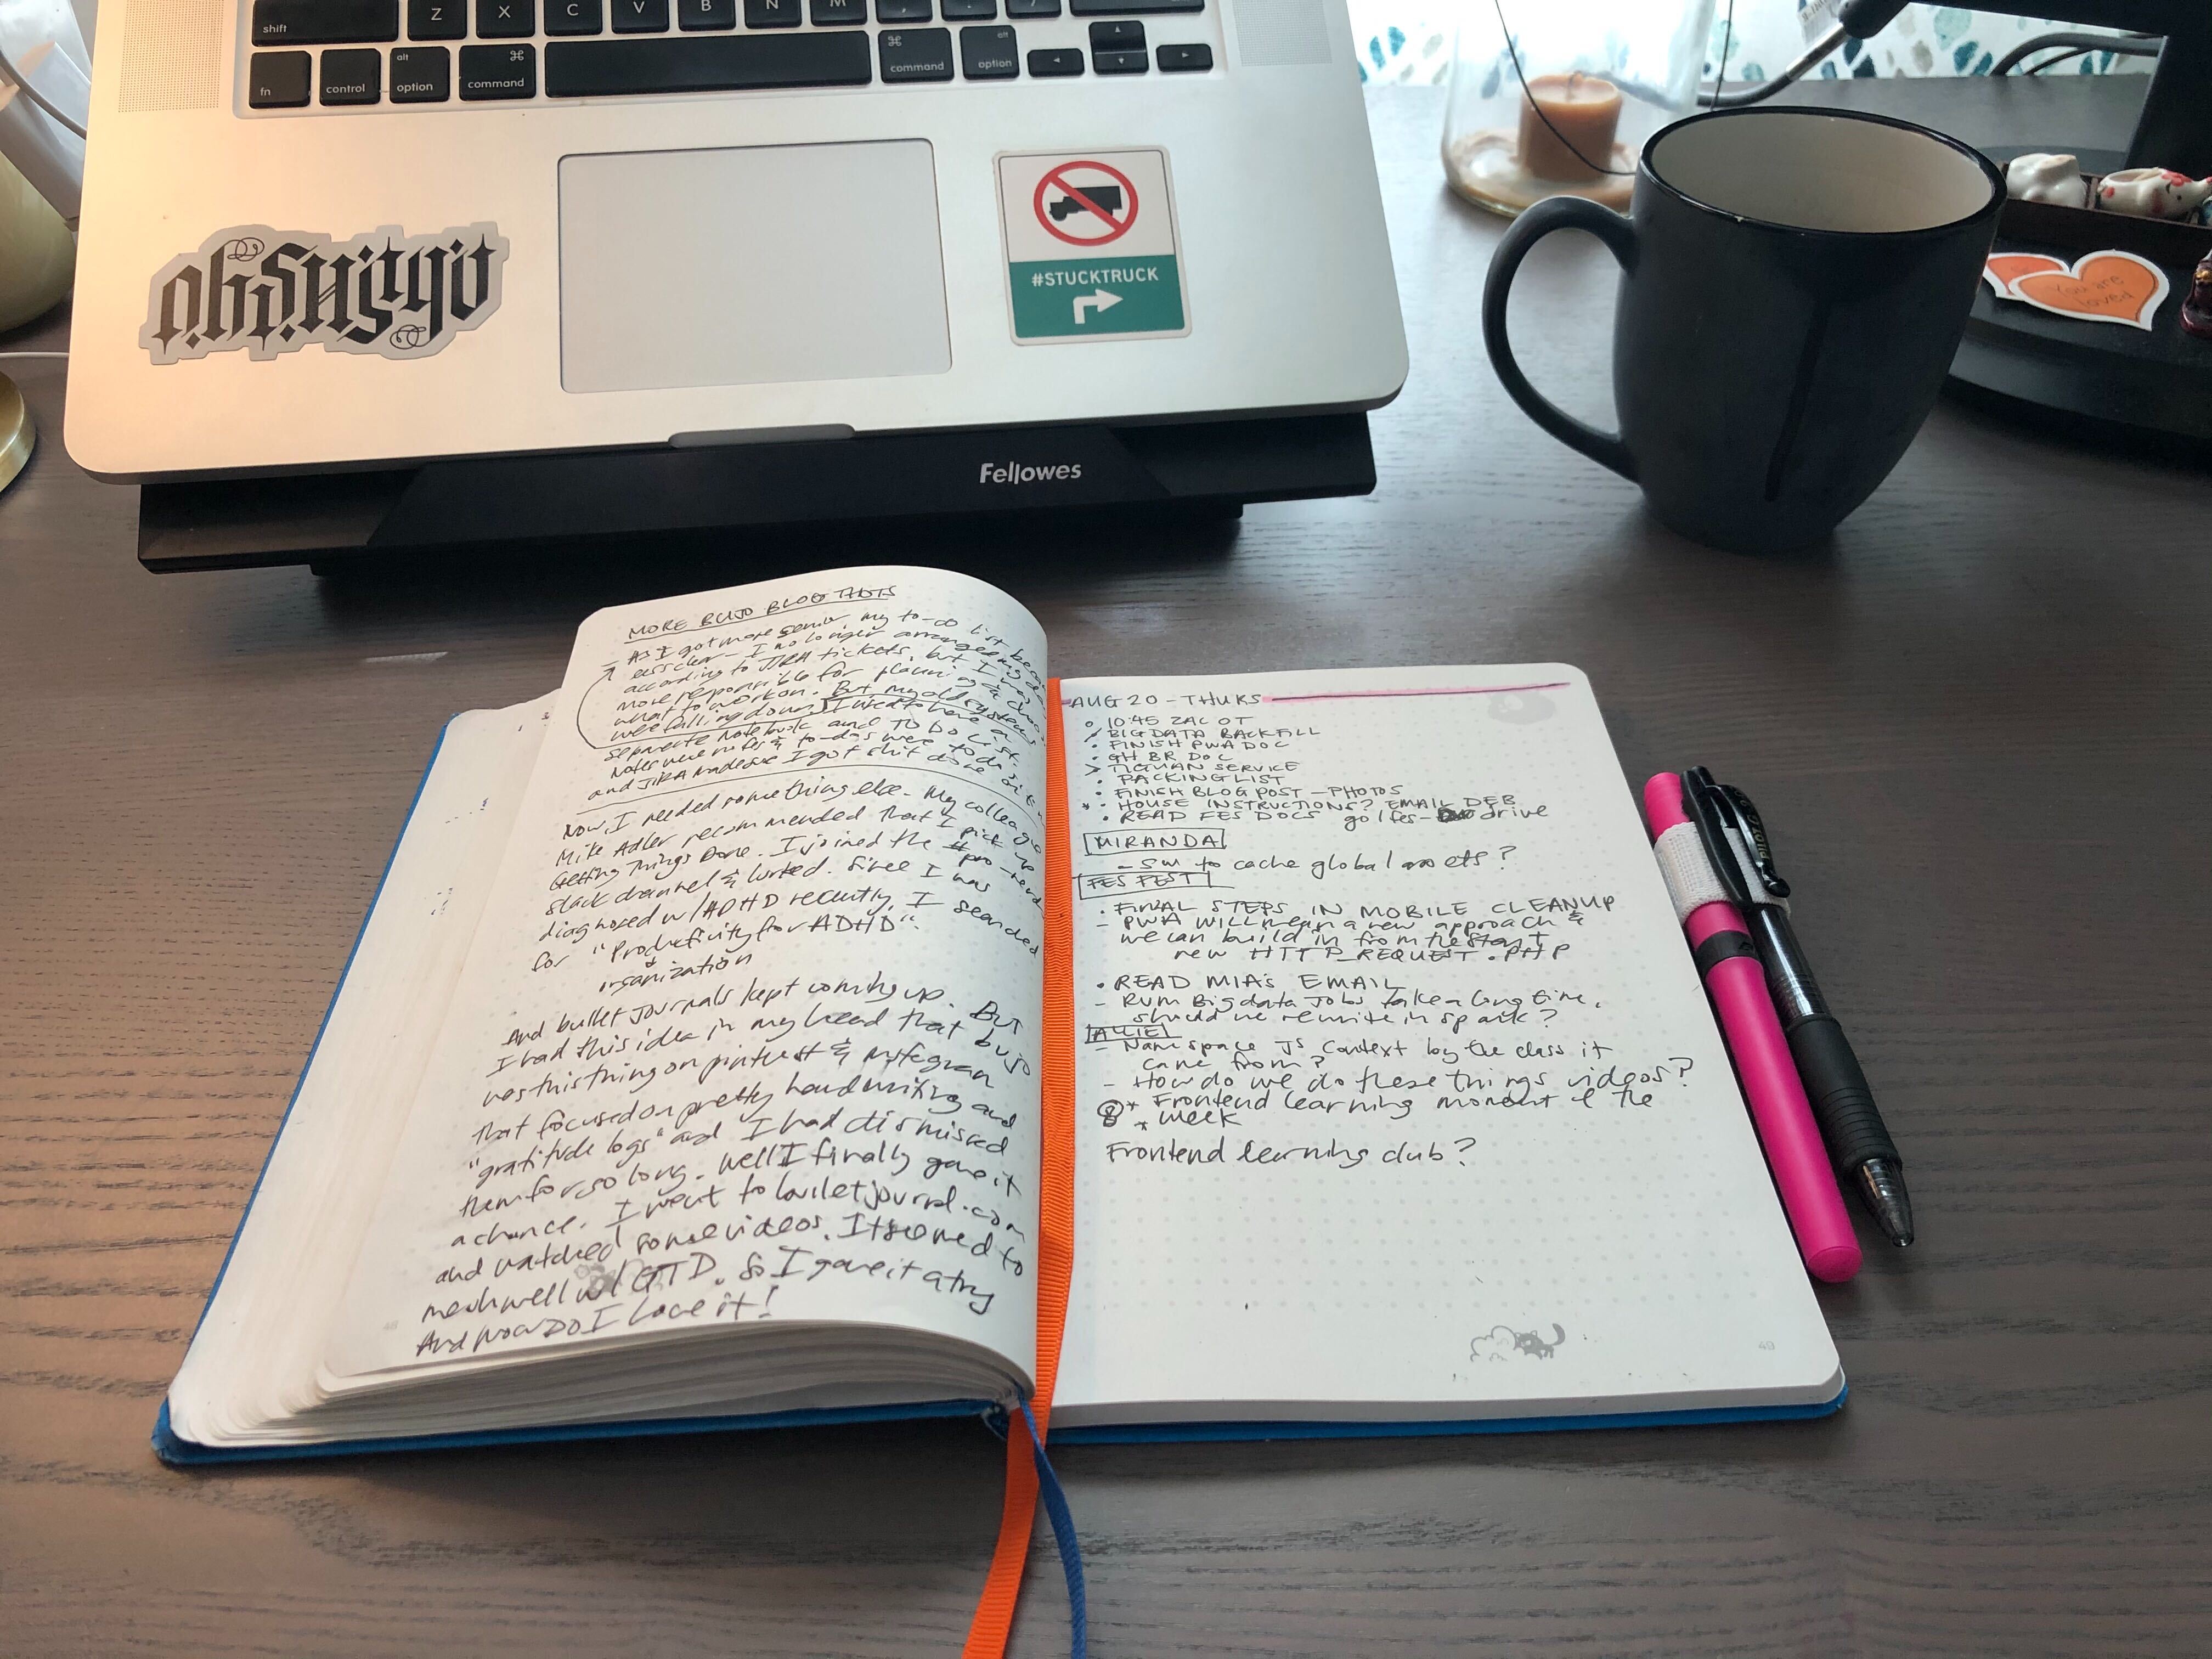 Z X C V B N M
shift
fn control alt option ⌘ command ⌘ command alt option
#STUCKTRUCK
Fellowes
You are
loved
MORE BUJO BLOG THOTS
- As I got more senior, my to-do list
less clear - I no longer arranged my
according to JIRA tickets, but I was
more responsible for planning &
what to work on. But my old systems
were falling down. I used to have a
separate notebook and TO DO LIST.
Notes were notes & to-dos were to-dos
and JIRA made sure I got shit done
Now, I needed something else. My colleague
Mike Adler recommended that I pick up
Getting Things Done. I joined the
slack channel & lurked. Since I was
diagnosed w/ ADHD recently, I searched
for "Productivity for ADHD".
& organization
And bullet journals kept coming up. But
I had this idea in my head that bujo
was this thing on pintrest & instagram
that focused on pretty handwriting and
"gratitude logs" and I had dismissed
them for so long. Well I finally gave it
a chance. I went to bulletjournal.com
and watched some videos. It seemed to
mesh well w/ GTD. So I gave it a try
And now DO I love it!
AUG 20 - THURS
10:45 ZAC OT
BIG DATA BACKFILL
• FINISH PWA DOC
• GH BR DOC
> TIGMAN SERVICE
• PACKING LIST
• FINISH BLOG POST - PHOTOS
* • HOUSE INSTRUCTIONS? EMAIL DEB
• READ FES DOCS go/fes- drive
MIRANDA
- SW to cache global assets?
FES FEST
• FINAL STEPS IN MOBILE CLEANUP
- PWA will mean a new approach &
we can build in from the start
new HTTP_REQUEST.PHP
• READ MIA's EMAIL
- Rum Big data Jobs take a long time,
should we rewrite in spark?
ALLIE
- Namespace JS Context by the class it
came from?
- How do we do these things videos?
* Frontend learning moment of the
* week
Frontend learning club?
49
PILOT G2